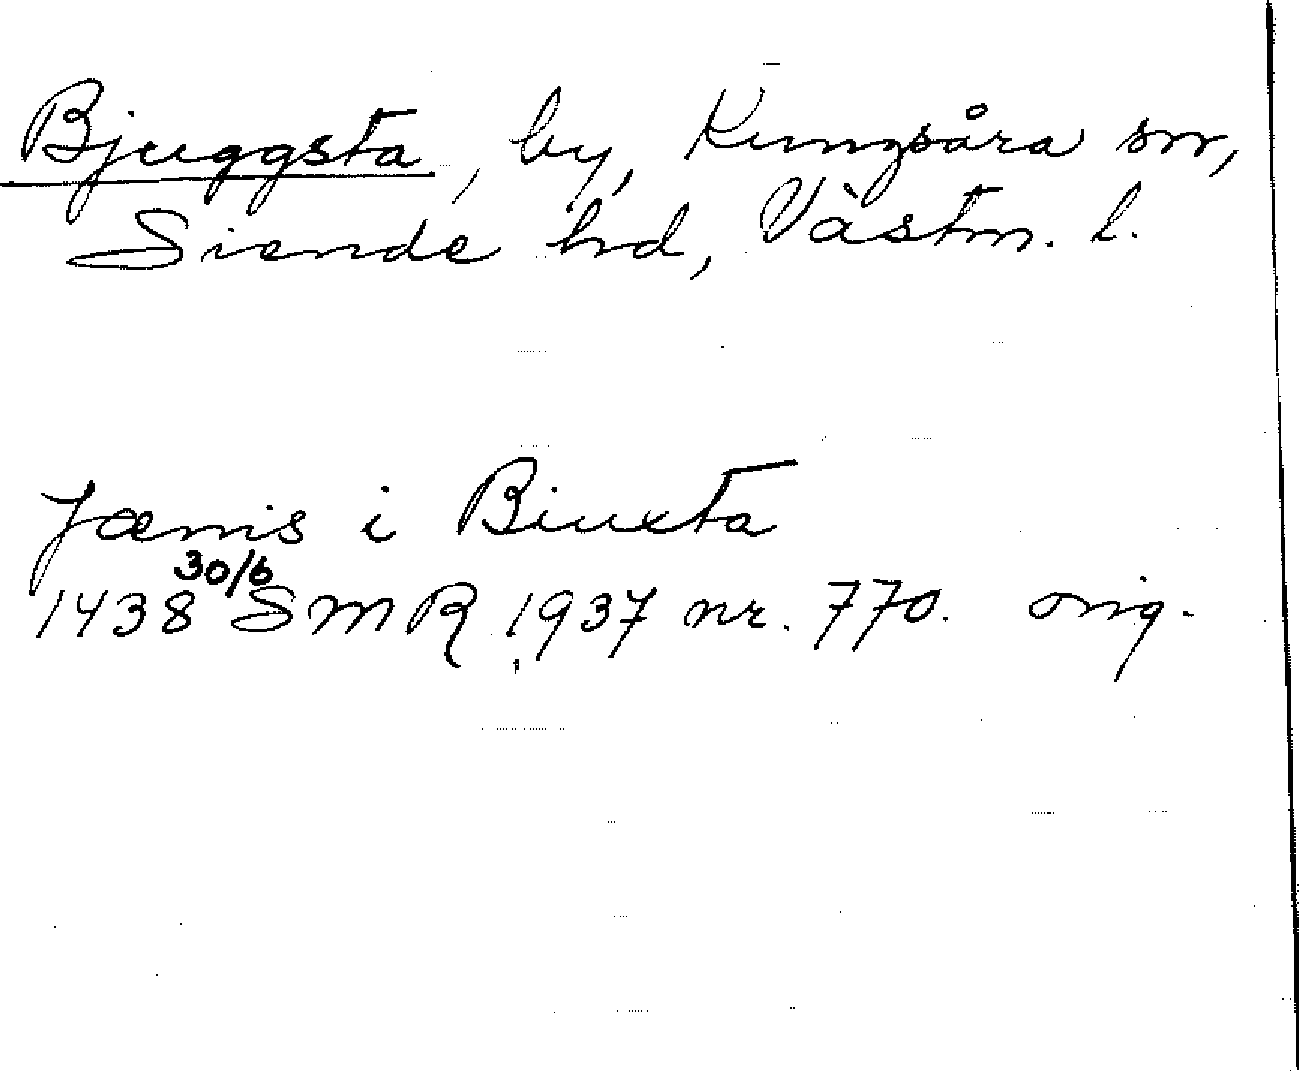 Bjuggsta, by, Kungsåra sn,
Siende hd, Västm. l.
Jænis i Biuxta
1438 30/6 SMR 1937 nr. 770. orig.